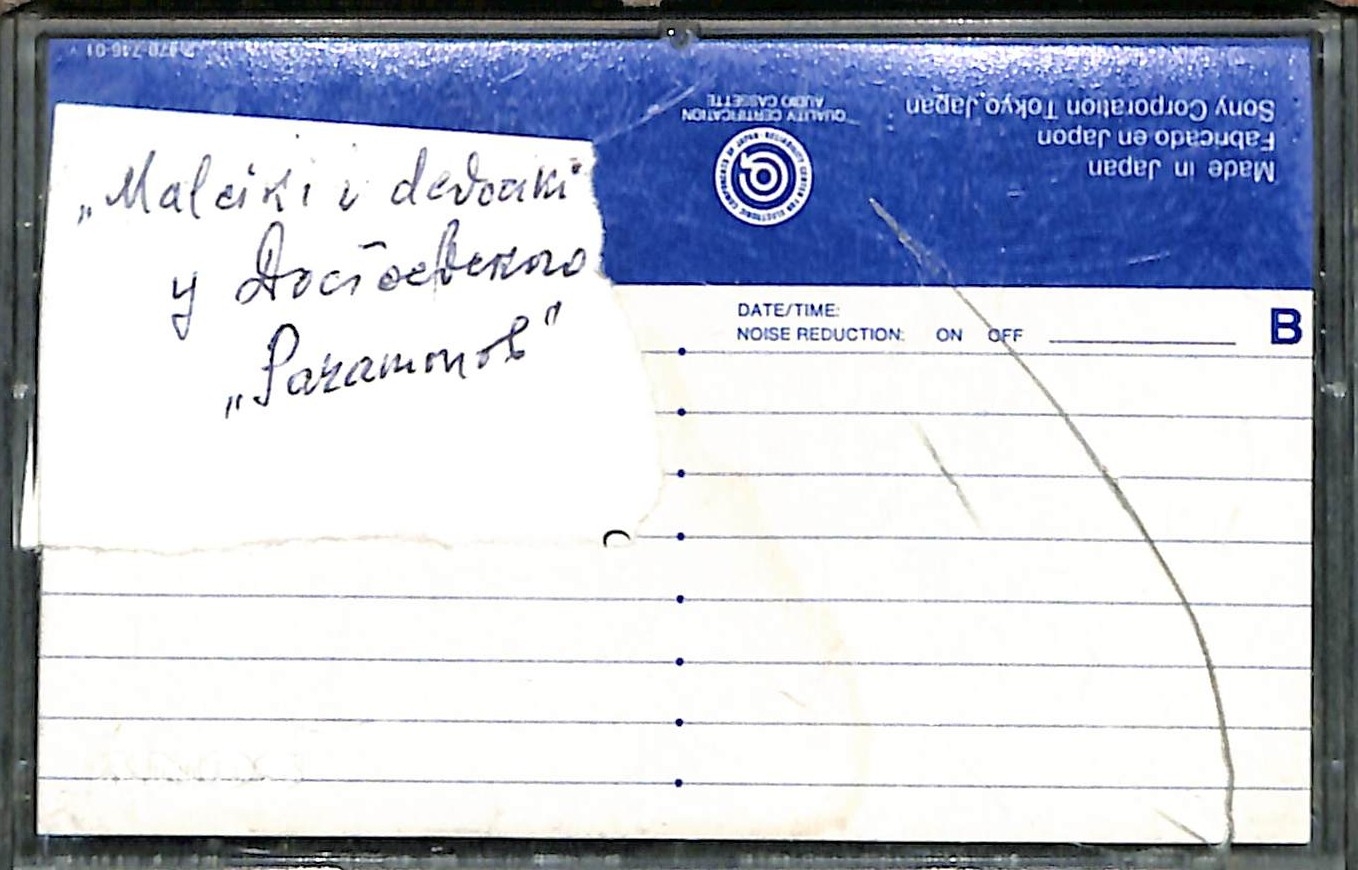 „Malciki i devocki
у Достоевского
„Paramonов"
DATE/TIME:
NOISE REDUCTION: ON OFF
B
Made in Japan
Fabricado en Japon
Sony Corporation Tokyo, Japan
QUALITY CERTIFICATION
AUDIO CASSETTE